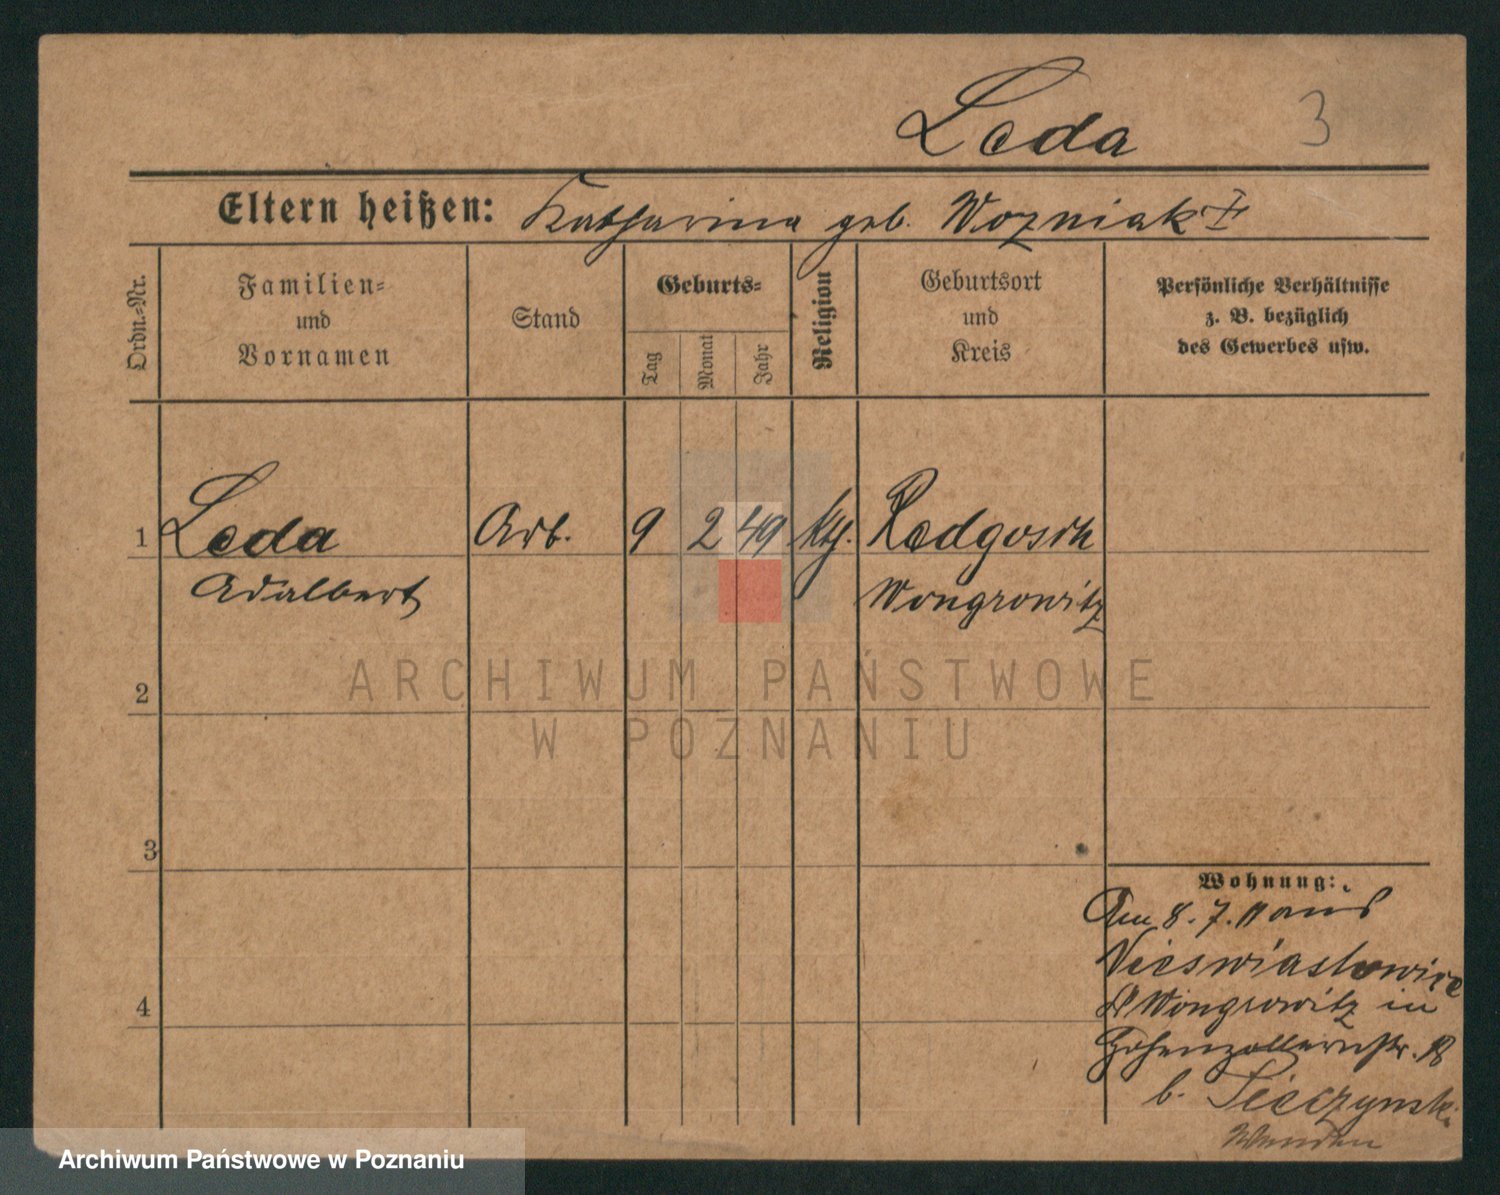 Leda 3
Eltern heißen: Katharina geb. Wozniak
Ordn.-Nr.
Familien-
und
Vornamen
Stand
Geburts-
Tag
Monat
Jahr
Religion
Geburtsort
und
Kreis
Persönliche Verhältnisse
z. B. bezüglich
des Gewerbes usw.
1 Leda Arb. 9 2 49 kth. Redgosch
Adalbert Wongrowitz
2
ARCHIWUM PAŃSTWOWE
W POZNANIU
3
Wohnung:
Am 8. 7. 11 aus
Nieswiastowice
Wongrowitz in
Hohenzollernstr. 18
b. Pieczynski
4
Archiwum Państwowe w Poznaniu